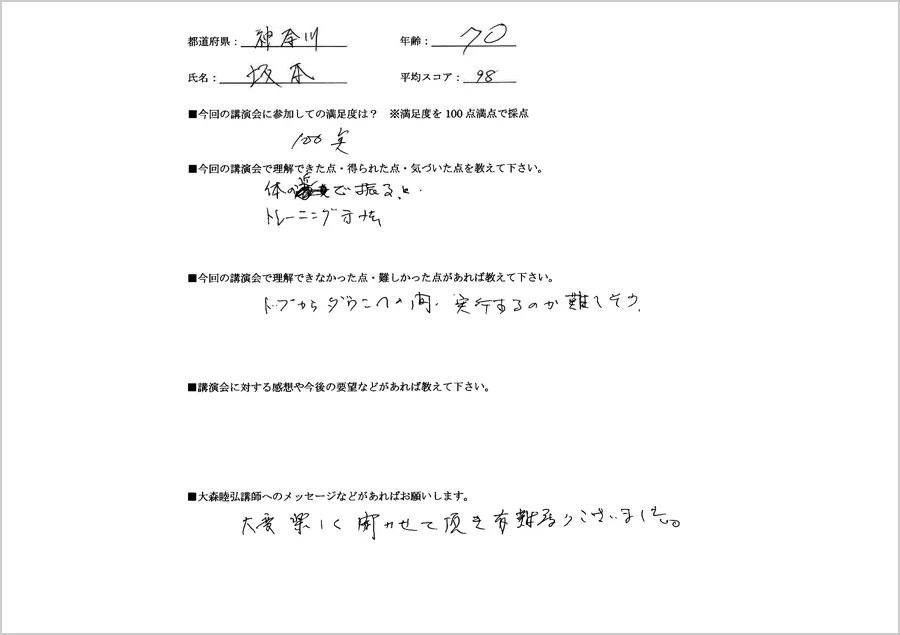 都道府県：神奈川 年齢：70
氏名：坂本 平均スコア：98
■今回の講演会に参加しての満足度は？ ※満足度を100点満点で採点
100点
■今回の講演会で理解できた点・得られた点・気づいた点を教えて下さい。
体の で振る と.
トレーニング方法
■今回の講演会で理解できなかった点・難しかった点があれば教えて下さい。
トップからダウンへの間. 実行するのが難しそう.
■講演会に対する感想や今後の要望などがあれば教えて下さい。
■大森睦弘講師へのメッセージなどがあればお願いします。
大変楽しく聞かせて頂き有難うございました。